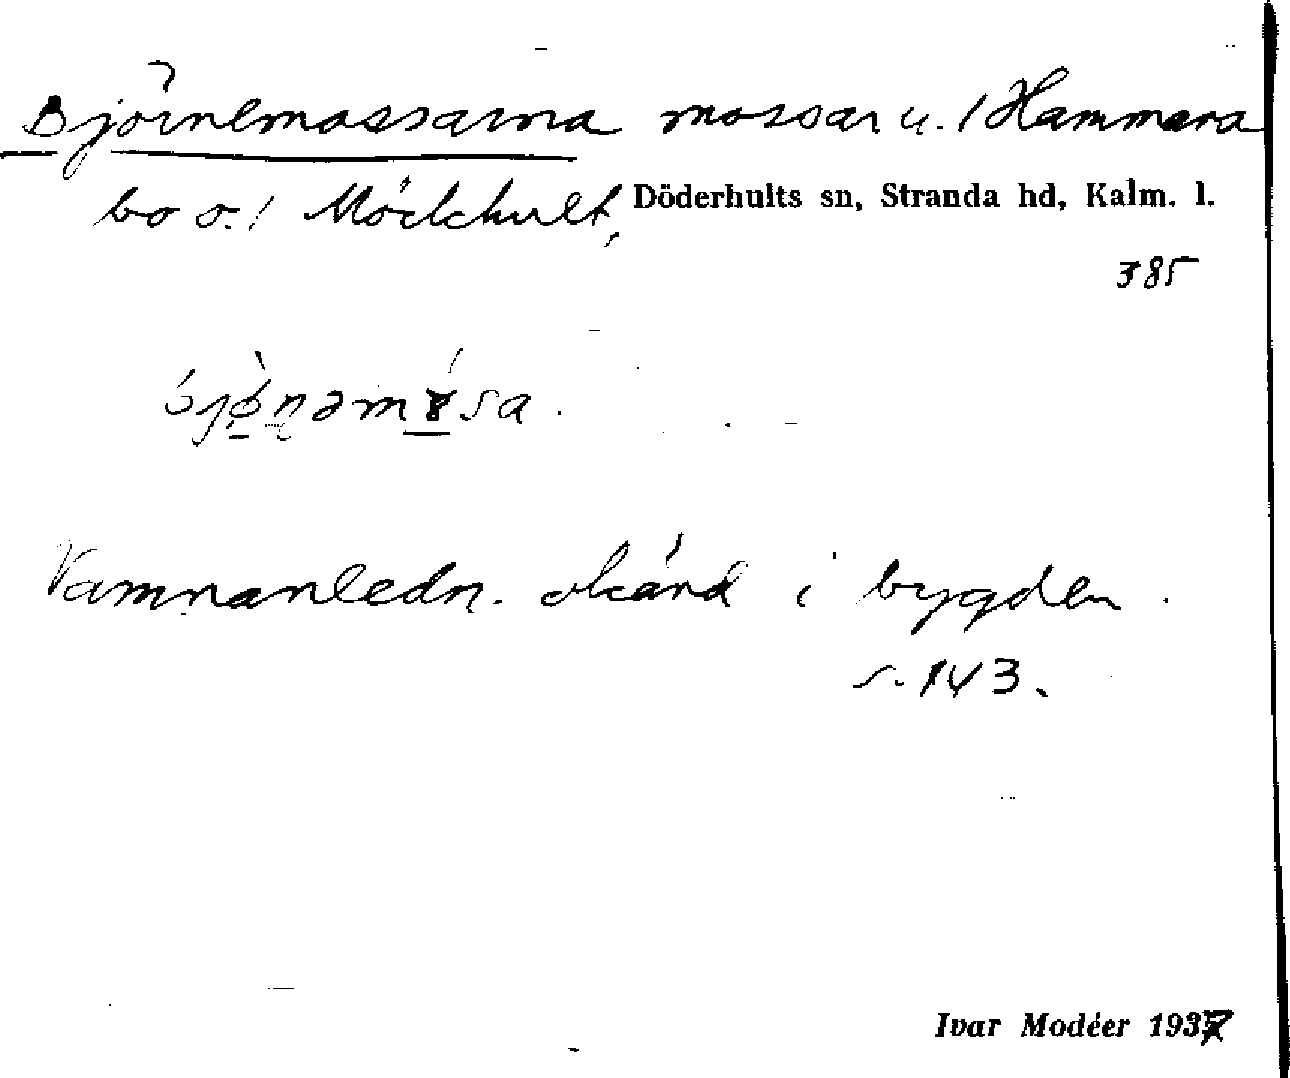 Björnemossarna mossar u./Hammara
bo o./ Möckhult, Döderhults sn, Stranda hd, Kalm. l.
385
Namnanledn. okänd i bygden.
s. 143.
Ivar Modéer 1937